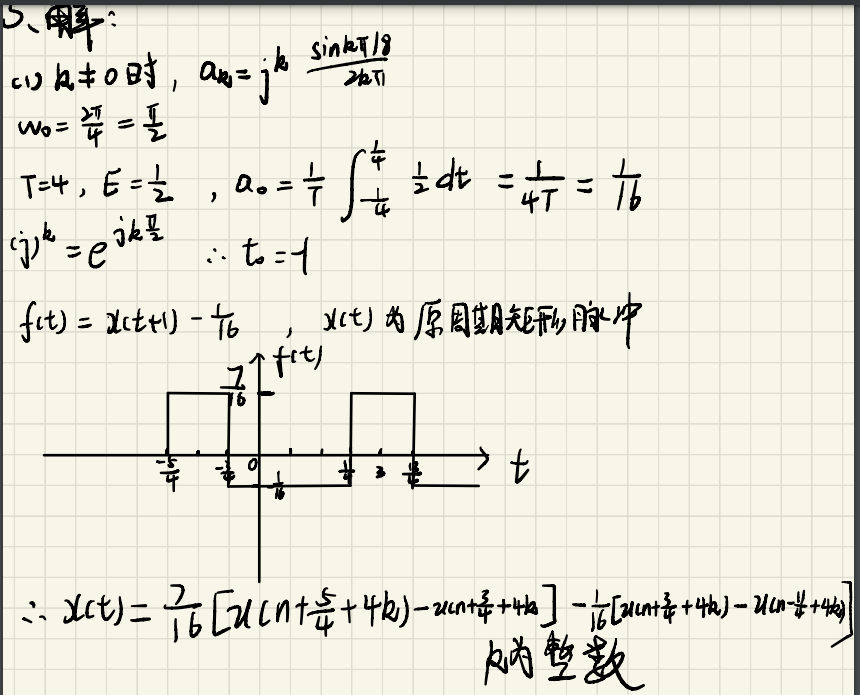 5、解：
(1) k≠0时，aₖ = j^k sinkπ/8 / 2kπ
w₀ = 2π/4 = π/2
T=4，E=1/2，a₀ = 1/T ∫_{-1/4}^{1/4} 1/2 dt = 1/4T = 1/16
(j)^k = e^{jkπ/2} ∴ t₀ = -1
f(t) = x(t+1) - 1/16，x(t)为原周期矩形脉冲
f(t)
7/16
-5/4 -3/4 0 -1/16 3 t
∴ x(t) = 7/16 [u(n+5/4+4k) - u(n+3/4+4k)] - 1/16 [u(n+3/4+4k) - u(n-11/4+4k)]
k为整数